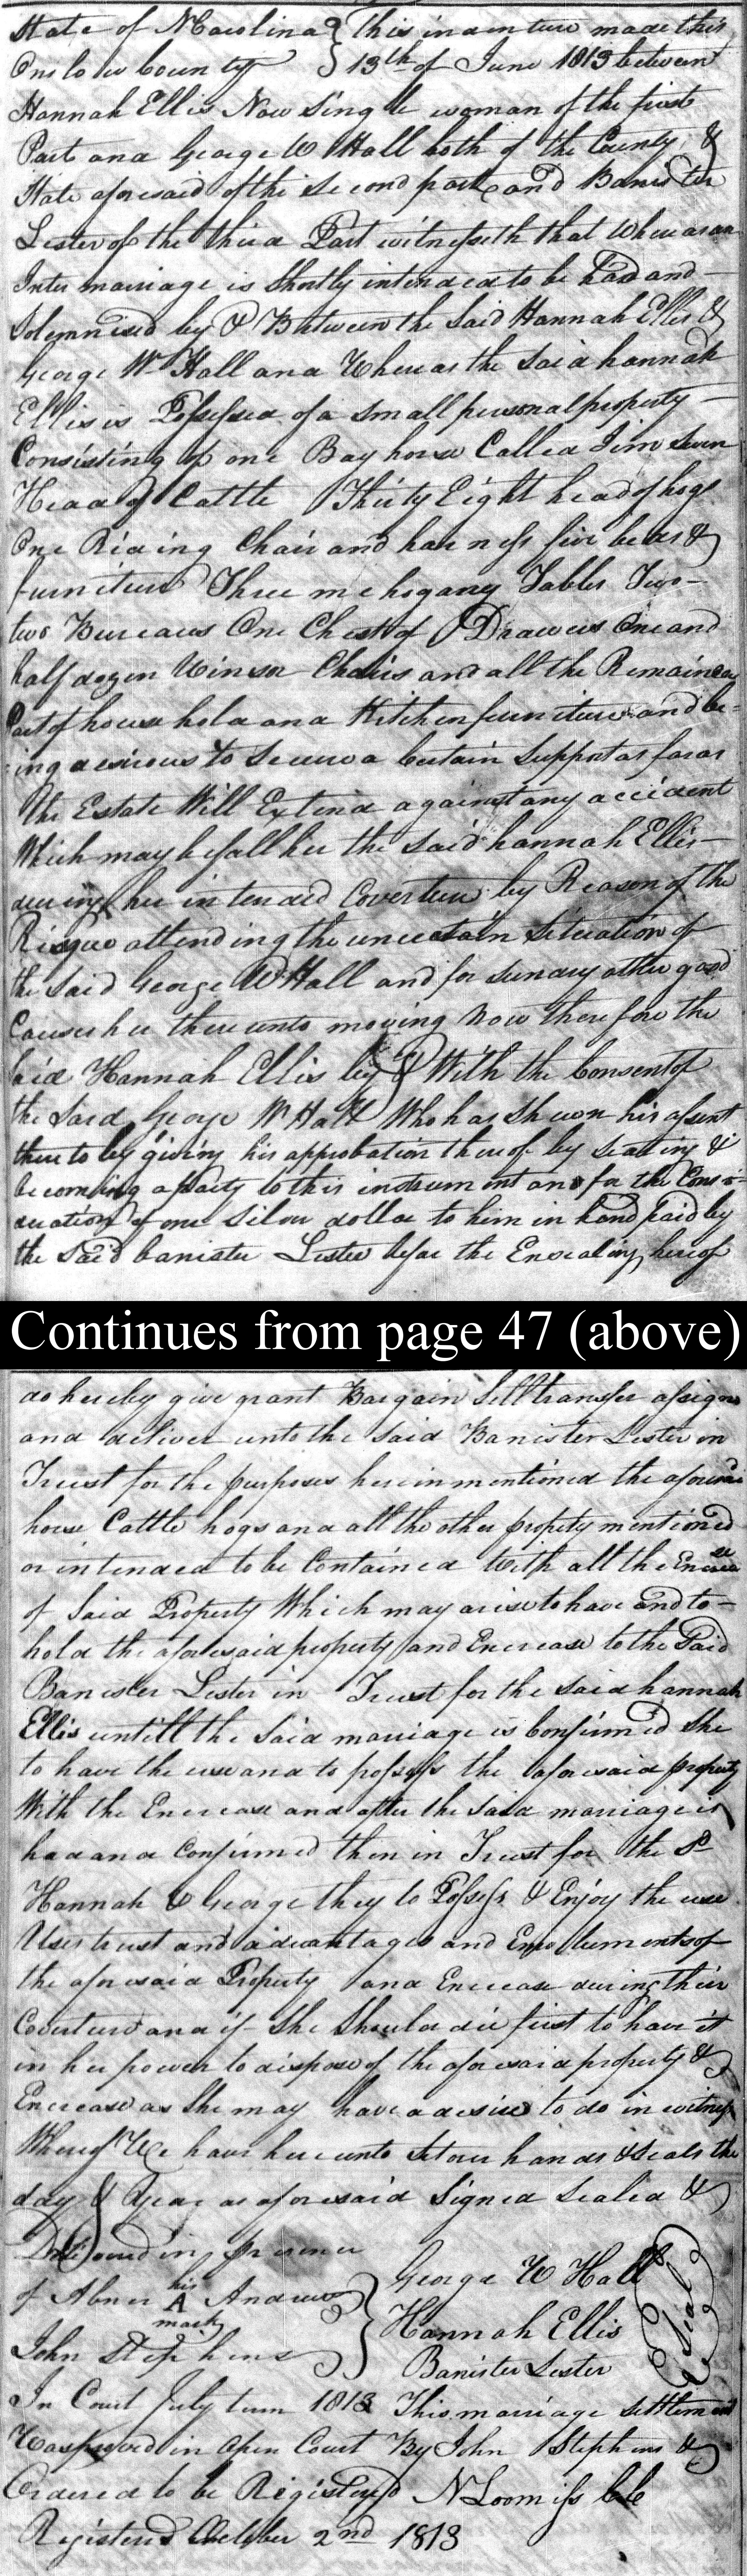 State of NCarolina } This indenture made this
Onslow County } 13th of June 1813 between
Hannah Ellis Now Single woman of the first
Part and George W Hall both of the County &
State aforesaid of the Second part and Banister
Lester of the third Part witnesseth that Whereas an
Inter marriage is Shortly intended to be had and
Solemnised by & Between the Said Hannah Ellis &
George W Hall and Whereas the Said hannah
Ellis is Possessed of a Small personal property
Consisting of one Bay horse Called Jim Seven
Head of Cattle Thirty Eight head of hogs
One Riding Chair and harness five beds &
furniture Three mehogany Tables Two
two Bureaus One Chest of Drawers One and
half dozen Winsor Chairs and all the Remainder
Part of house hold and Kitchen furniture and be=
ing desirous to Secure a Certain Support as far as
the Estate Will Extend against any accident
Which may befall her the Said hannah Ellis
during her intended Coverture by Reason of the
Risque attending the uncertain Situation of
the Said George W Hall and for Sundry other good
Causes her there unto moving Now therefore the
Said Hannah Ellis by & With the Consent of
the Said George W Hall Who has Shewn his assent
there to by giving his approbation thereof by Sealing &
becoming a party to this instrument and for the Consi=
deration of one Silver dollar to him in hand paid by
the Said banister Lester before the Ensealing hereof
Continues from page 47 (above)
do hereby give grant Bargain Sell transfer assign
and deliver unto the Said Banister Lester in
Trust for the purposes herein mentioned the aforesaid
horse Cattle hogs and all the other property mentioned
or intended to be Contained With all the Encrease
of Said Property Which may arise to have and to
hold the aforesaid property and Encrease to the Said
Banister Lester in Trust for the Said hannah
Ellis untill the Said marriage is Confirmed She
to have the use and to possess the aforesaid property
With the Encrease and after the Said marriage is
had and Confirmed then in Trust for the Sd
Hannah & George they to Possess & Enjoy the use
Uses trust and advantages and Emolluments of
the aforesaid Property and Encrease during their
Coverture and if She Should die first to have it
in her power to dispose of the aforesaid property &
Encrease as She may have a desire to do in witness
Whereof We have here unto Set our hands & Seals the
day & Year as aforesaid Signed Sealed &
Delivered in presence
of Abner his A mark Andrews } George W Hall
John Stephens } Hannah Ellis (Seal)
Banister Lester
In Court July term 1813 This marriage Settlement
Was proved in Open Court By John Stephens &
Ordered to be Registered N Loomiss Clk
Registered October 2nd 1813